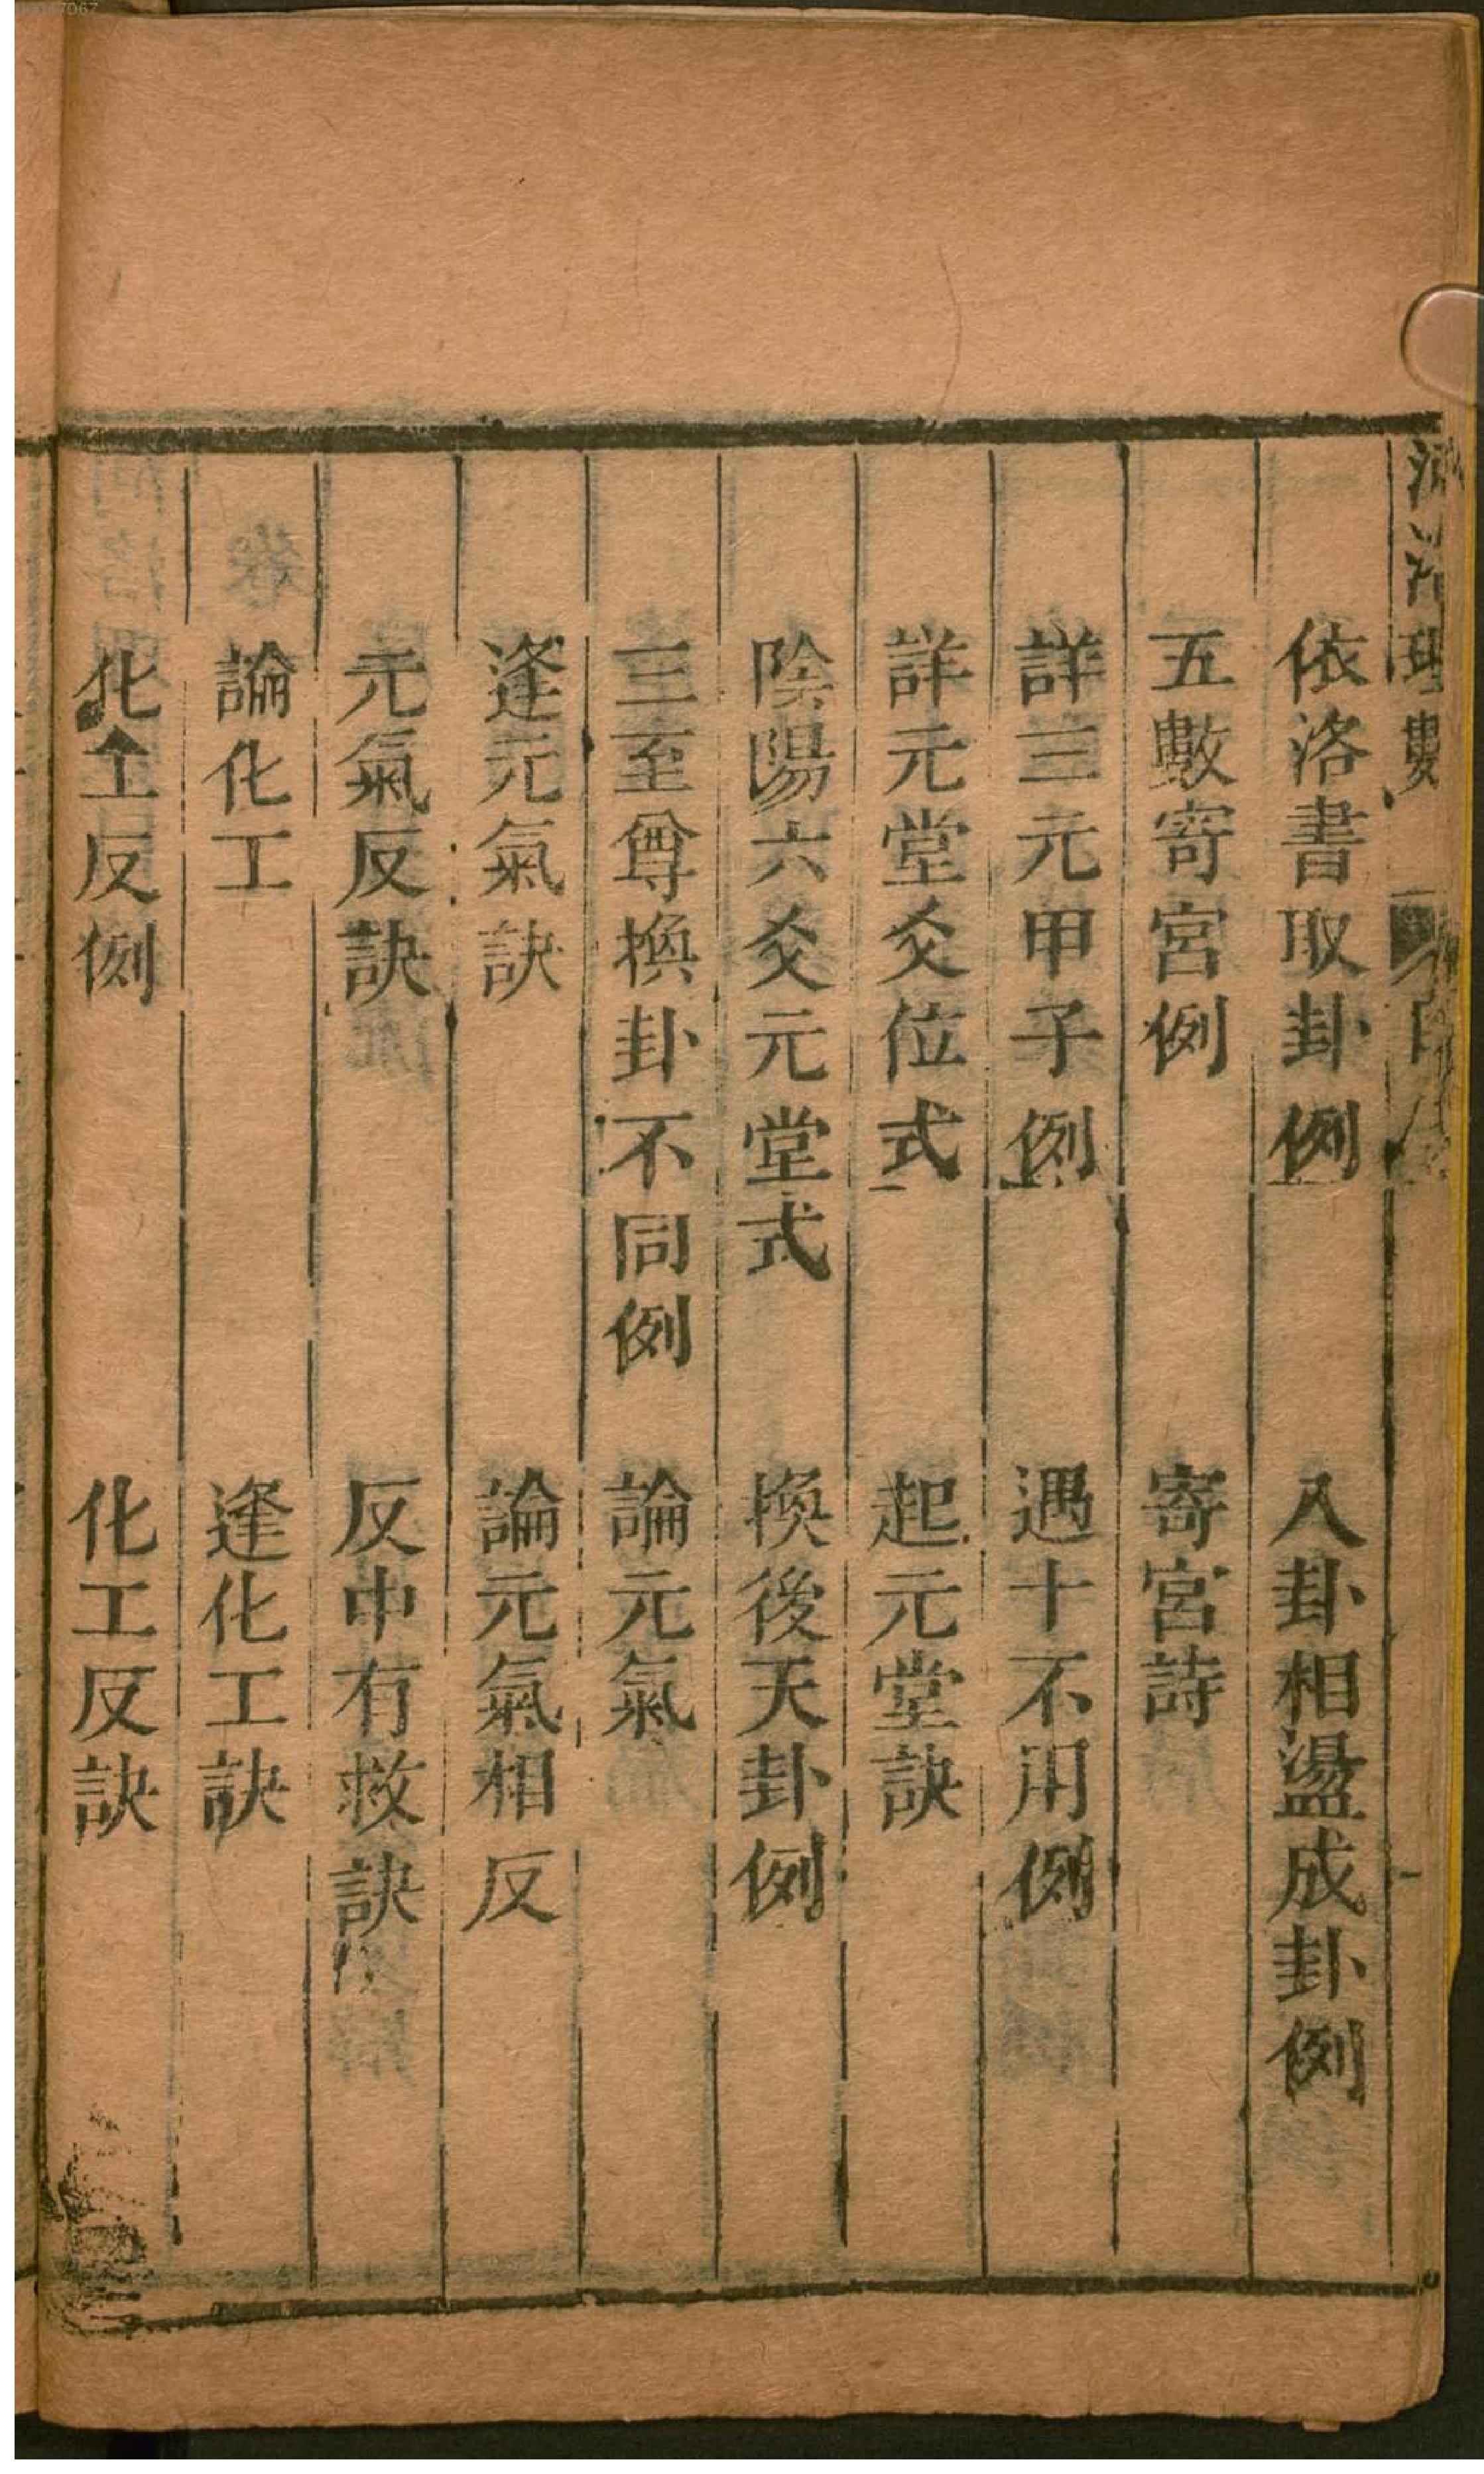 河洛理數
依洛書取卦例　八卦相盪成卦例
五數寄宮例　寄宮詩
詳三元甲子例　遇十不用例
詳元堂爻位式　起元堂訣
陰陽六爻元堂式　換後天卦例
三至尊換卦不同例　論元氣
逢元氣訣　論元氣相反
元氣反訣　反中有救訣
論化工　逢化工訣
化工反例　化工反訣